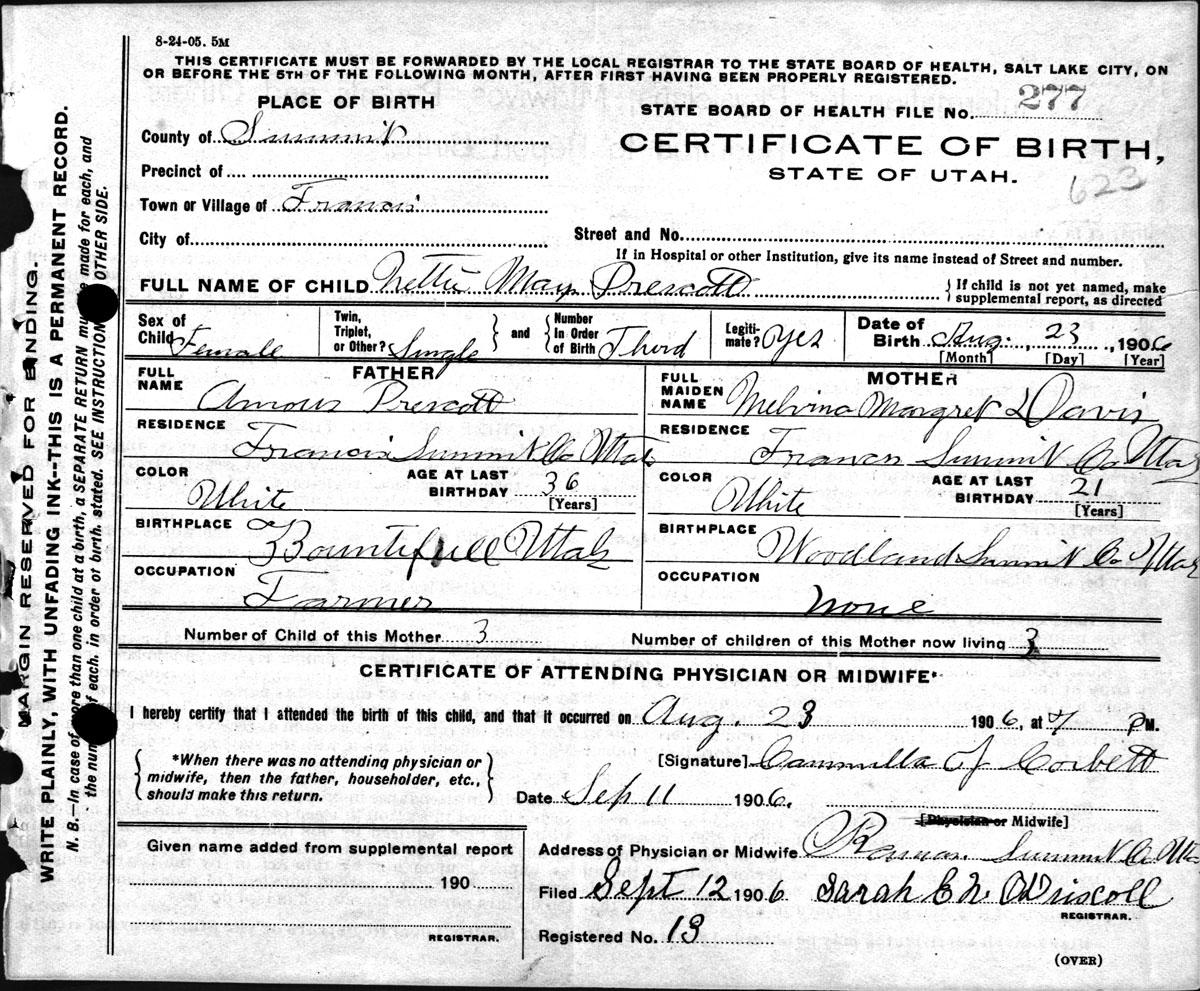 8-24-05. 5M
THIS CERTIFICATE MUST BE FORWARDED BY THE LOCAL REGISTRAR TO THE STATE BOARD OF HEALTH, SALT LAKE CITY, ON
OR BEFORE THE 5TH OF THE FOLLOWING MONTH, AFTER FIRST HAVING BEEN PROPERLY REGISTERED.
PLACE OF BIRTH
STATE BOARD OF HEALTH FILE No. 277
County of Summit
CERTIFICATE OF BIRTH,
STATE OF UTAH.
623
Precinct of
Town or Village of Francis
City of
Street and No.
If in Hospital or other Institution, give its name instead of Street and number.
FULL NAME OF CHILD Nettie May Prescott
If child is not yet named, make
supplemental report, as directed
Sex of
Child Female
Twin,
Triplet,
or Other? Single
and
Number
In Order
of Birth Third
Legiti-
mate? Yes
Date of
Birth Aug. 23, 1906
[Month] [Day] [Year]
FATHER
FULL
NAME
Amous Prescott
RESIDENCE
Francis Summit Co Utah
COLOR
White
AGE AT LAST
BIRTHDAY 36
[Years]
BIRTHPLACE
Bountifull Utah
OCCUPATION
Farmer
MOTHER
FULL
MAIDEN
NAME Melvina Margret Davis
RESIDENCE
Francis Summit Co Utah
COLOR
White
AGE AT LAST
BIRTHDAY 21
[Years]
BIRTHPLACE
Woodland Summit Co Utah
OCCUPATION
none
Number of Child of this Mother 3
Number of children of this Mother now living 3
CERTIFICATE OF ATTENDING PHYSICIAN OR MIDWIFE*
I hereby certify that I attended the birth of this child, and that it occurred on Aug. 23 1906, at 7 P M.
*When there was no attending physician or
midwife, then the father, householder, etc.,
should make this return.
[Signature] Cammilla J Corbett
Date Sep 11 1906.
[Physician or Midwife]
Given name added from supplemental report
190
REGISTRAR.
Address of Physician or Midwife Summit Co Utah
Filed Sept 12 1906 Sarah E. N. O'Driscoll
REGISTRAR.
Registered No. 13
(OVER)
MARGIN RESERVED FOR BINDING.
WRITE PLAINLY, WITH UNFADING INK--THIS IS A PERMANENT RECORD.
N. B.—In case of more than one child at a birth, a SEPARATE RETURN must be made for each, and
the number of each, in order of birth, stated. SEE INSTRUCTIONS OTHER SIDE.